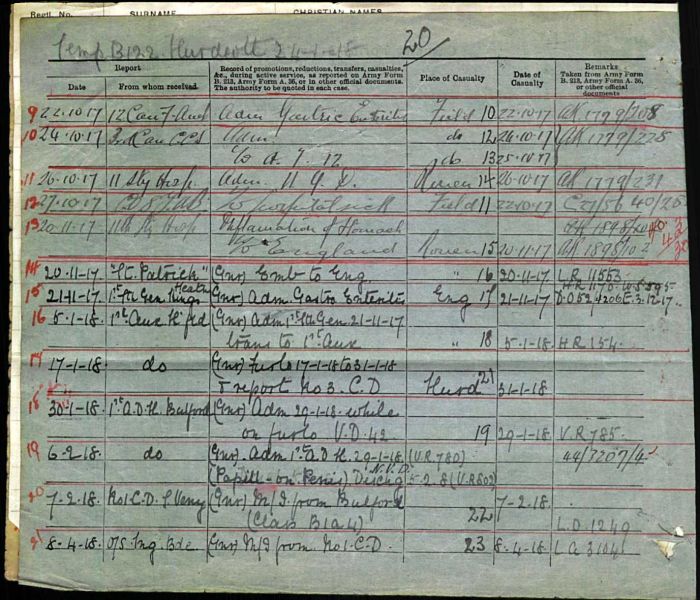 Regtl. No. SURNAME CHRISTIAN NAMES
Temp B122 Hurdcott 2 11-1-18 20
Report Record of promotions, reductions, transfers, casualties, &c., during active service, as reported on Army Form B. 213, Army Form A. 36, or in other official documents. The authority to be quoted in each case. Place of Casualty Date of Casualty Remarks Taken from Army Form B. 213, Army Form A. 36, or other official documents
Date From whom received.
9 22.10.17 12 Can F. Amb Adm Gastric Enteritis Field 10 22-10-17 AK 1779/208
10 24.10.17 3rd Can CCS Adm do 12 24-10-17 AK 1779/225
To A.T. 12 do 13 25-10-17
11 26.10.17 11 Sty Hosp. Adm. Rouen 14 26-10-17 AK 1779/231
12 27.10.17 To hospital sick Field 11 22-10-17 40/26
13 20-11-17 11th Sty Hosp Inflammation of Stomach
To England Rouen 15 20-11-17 AK 1898/102
14 20-11-17 "St. Patrick" (Gnr) Emb to Eng " 16 20-11-17 L.R 11553
15 21-11-17 1st Sth Gen Kings Heath (Gnr) Adm Gastro Enteritis Eng 17 21-11-17
16 5-1-18 1st Aux H'fld (Gnr) Adm 1st Sth Gen 21-11-17
trans to 1st Aux " 18 5-1-18 HR 154
17 17-1-18 do (Gnr) furlo 17-1-18 to 31-1-18
& report No 3. C.D Hurd 21 31-1-18
18 30-1-18 1st A.D.H. Bulford (Gnr) Adm 29-1-18 while
on furlo V.D. 42 19 29-1-18 V.R 785
19 6-2-18 do (Gnr) Adm 1st A.D.H. 29-1-18 (V.R 780) 44/7207/4
(Papill-on Penis) N.V.D. Dischg 5-2-8 (V.R 802)
20 7-2-18. No 1 C.D. S Veny (Gnr) M/I from Bulford 7-2-18.
(Class B1A4) 22 L.D. 1249
21 8-4-18. O/S Trng. Bde (Gnr) M/I from No 1 C.D. 23 8-4-18 L.G 3104